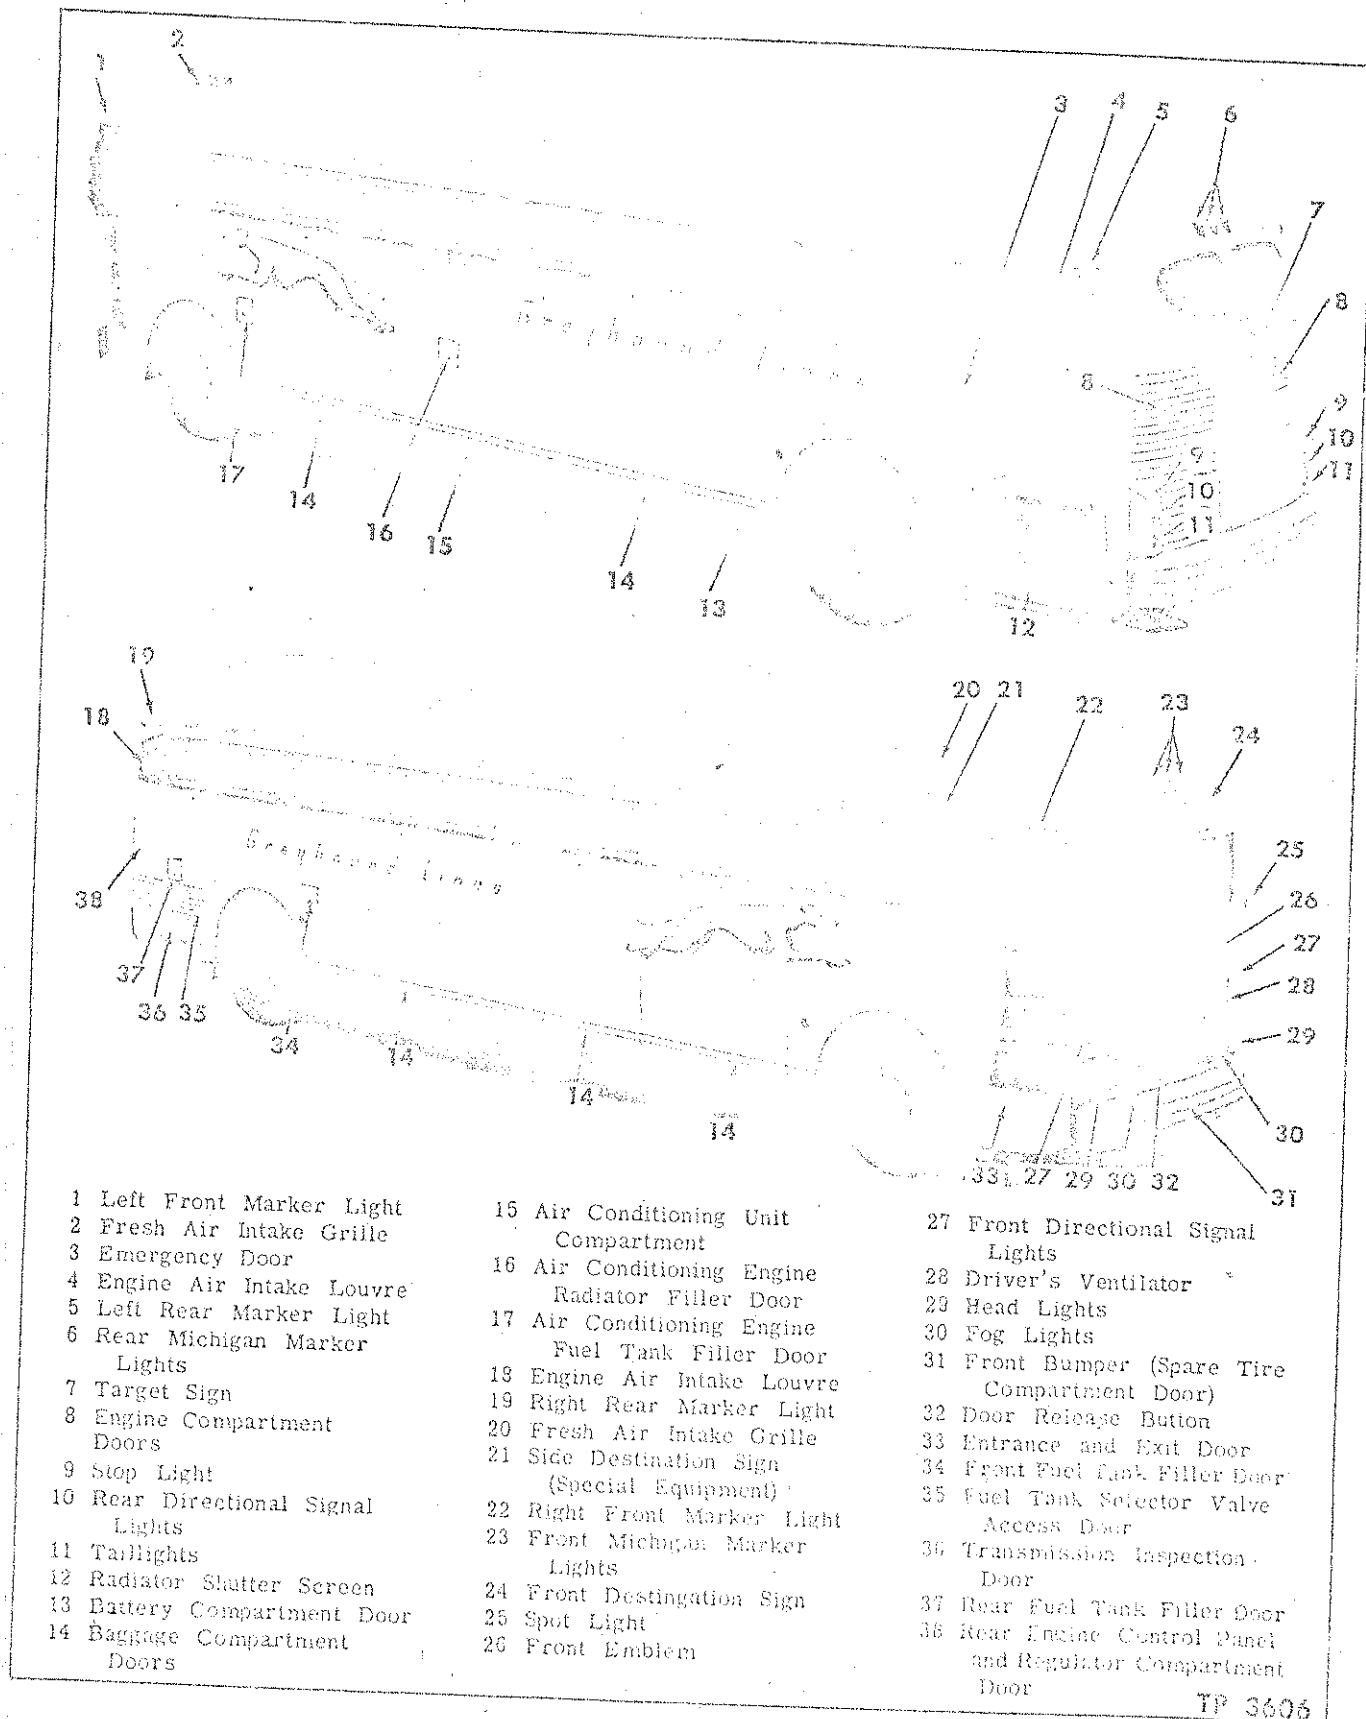 1
2
3
4
5
6
7
8
Greyhound Lines
8
9
10
11
9
10
11
17
14
16
15
14
13
12
19
18
20
21
22
23
24
Greyhound Lines
25
26
27
28
29
38
37
36
35
34
14
14
14
30
31
33
27
29
30
32
1 Left Front Marker Light
2 Fresh Air Intake Grille
3 Emergency Door
4 Engine Air Intake Louvre
5 Left Rear Marker Light
6 Rear Michigan Marker
Lights
7 Target Sign
8 Engine Compartment
Doors
9 Stop Light
10 Rear Directional Signal
Lights
11 Taillights
12 Radiator Shutter Screen
13 Battery Compartment Door
14 Baggage Compartment
Doors
15 Air Conditioning Unit
Compartment
16 Air Conditioning Engine
Radiator Filler Door
17 Air Conditioning Engine
Fuel Tank Filler Door
18 Engine Air Intake Louvre
19 Right Rear Marker Light
20 Fresh Air Intake Grille
21 Side Destination Sign
(Special Equipment)
22 Right Front Marker Light
23 Front Michigan Marker
Lights
24 Front Destingation Sign
25 Spot Light
26 Front Emblem
27 Front Directional Signal
Lights
28 Driver's Ventilator
29 Head Lights
30 Fog Lights
31 Front Bumper (Spare Tire
Compartment Door)
32 Door Release Button
33 Entrance and Exit Door
34 Front Fuel Tank Filler Door
35 Fuel Tank Selector Valve
Access Door
36 Transmission Inspection
Door
37 Rear Fuel Tank Filler Door
38 Rear Engine Control Panel
and Regulator Compartment
Door
TP 3606